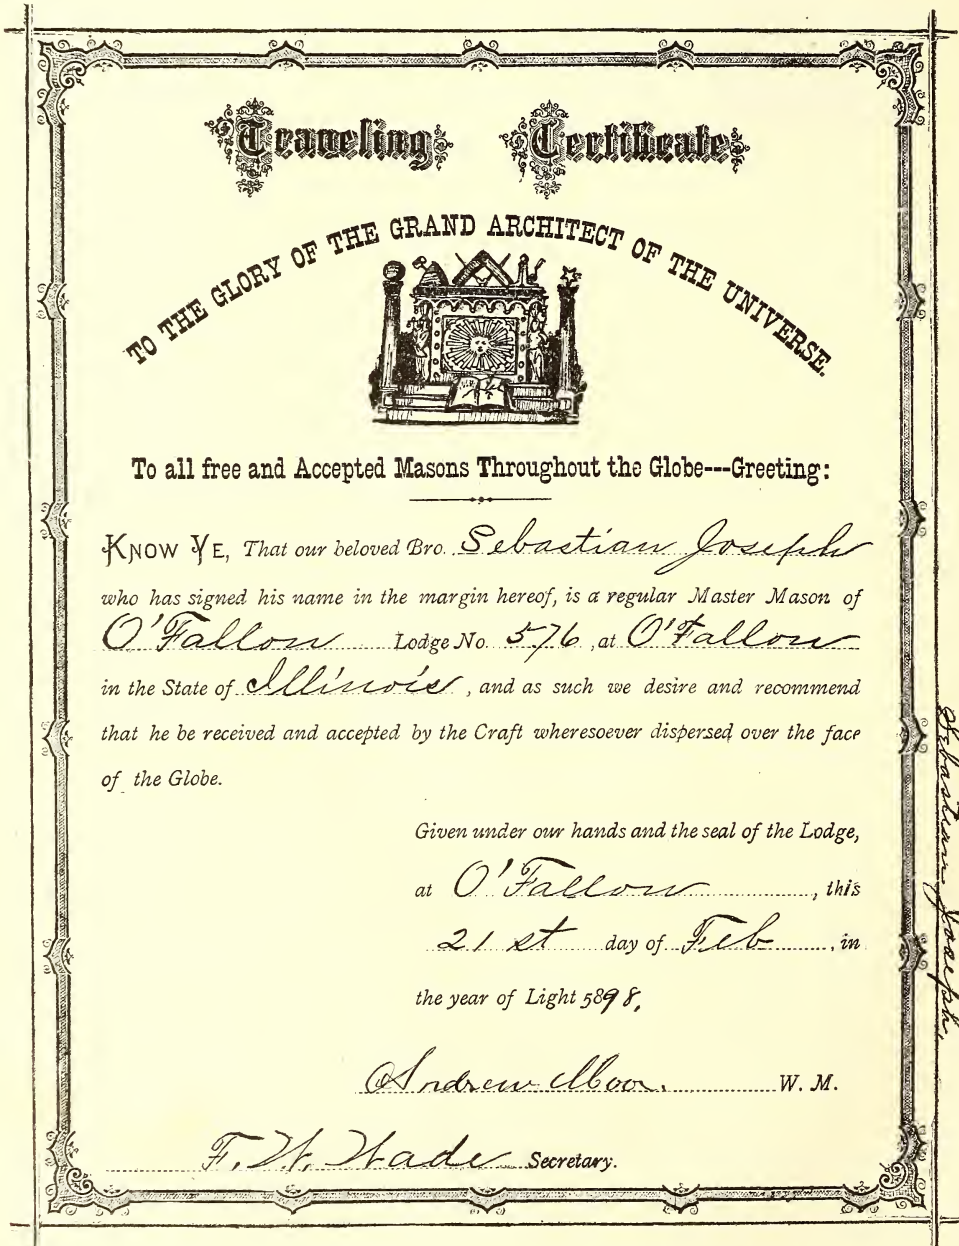 Traveling Certificate
TO THE GLORY OF THE GRAND ARCHITECT OF THE UNIVERSE.
To all free and Accepted Masons Throughout the Globe---Greeting:
KNOW YE, That our beloved Bro. Sebastian Joseph
who has signed his name in the margin hereof, is a regular Master Mason of
O'Fallon Lodge No. 576, at O'Fallon
in the State of Illinois, and as such we desire and recommend
that he be received and accepted by the Craft wheresoever dispersed over the face
of the Globe.
Given under our hands and the seal of the Lodge,
at O'Fallon, this
21st day of Feb, in
the year of Light 5898,
Andrew Moon. W. M.
F. W. Wade Secretary.
Sebastian Joseph,